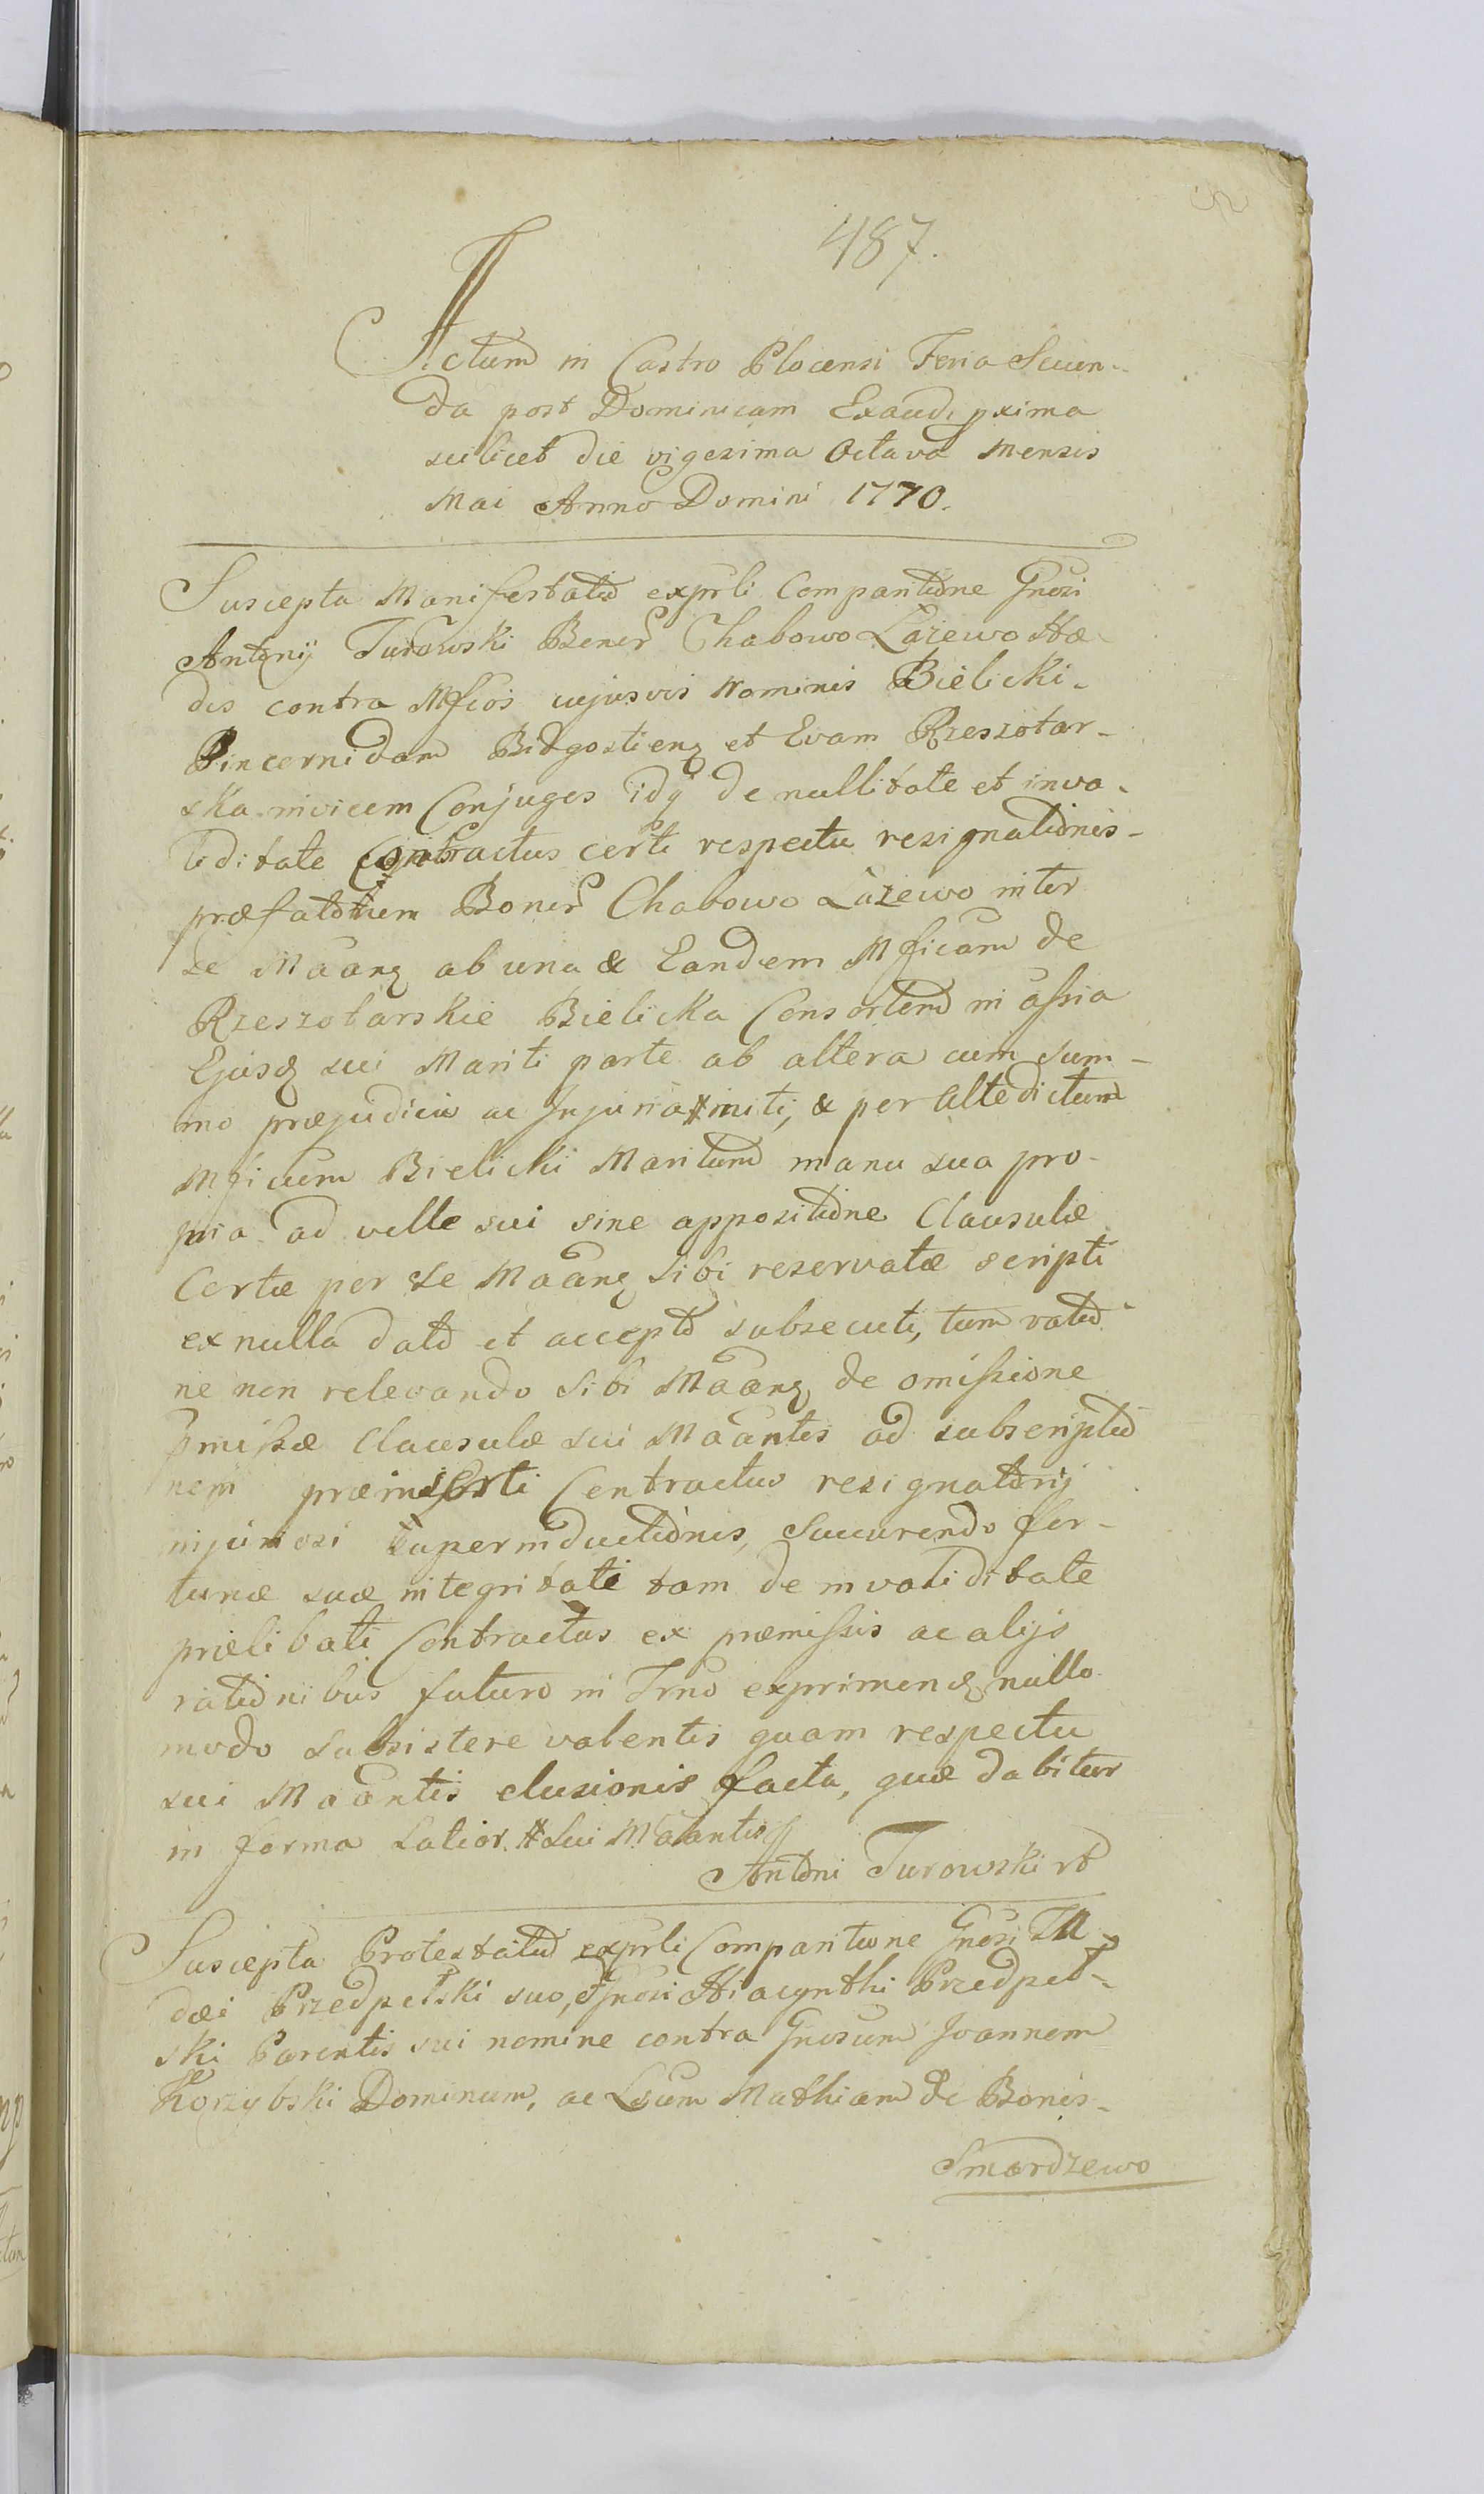 487.
Actum in Castro Plocensi Feria Secun-
da post Dominicam Exaudi pxima
scilicet die vigesima Octava Mensis
Mai Anno Domini 1770.
Suscepta Manifestatio exprli Comparitione Gnosi
Antonij Turowski Bonor Chabowo Łazewo Hæ-
dis contra Mfcos cujusvis Nominis Bielicki-
Pincernidam Bidgostieng et Evam Rzeszotar-
ska invicem Conjuges idq de nullitate et inva-
liditate Contractus certi respectu resignationis-
præfatorum Bonor Chabowo Łazewo inter
se Maang ab una & Eandem Mficam de
Rzeszotarskie Bielicka Consortem in assia
Ejusd sui Mariti parte ab altera cum sum-
mo præjudicio ac Injuria # initi, & per Altedictum
Mficum Bielicki Maritum manu sua pro-
pria ad velle sui sine appositione Clausulæ
Certæ per se Maang sibi reservatæ scripti
ex nulla dato et accepto subsecuti, tum ratio
ne non relevando sibi Maang de omissione
pmissæ Clausulæ sui Maantis ad subscriptio
nem præinserti Contractus resignatorij
injuriosi superinductionis, Succurendo for-
tunæ suæ integritati tam de invaliditate
prælibati Contractus ex præmissis ac alijs
rationibus futuro in Trno exprimend nullo
modo subsistere valentis quam respectu
sui Maantis elusionis facta, quæ dabitur
in forma Latior. # Sui Maantis
Antoni Turowski rb
Suscepta Protestatio exprli Comparitione Gnosi Th
dæi Przedpełski suo, & Gnosi Hiacynthi Przedpeł-
ski Parentis sui nomine contra Gnosum Joannem
Korzybski Dominum, ac Lsum Mathiam de Bonis-
Smardzewo